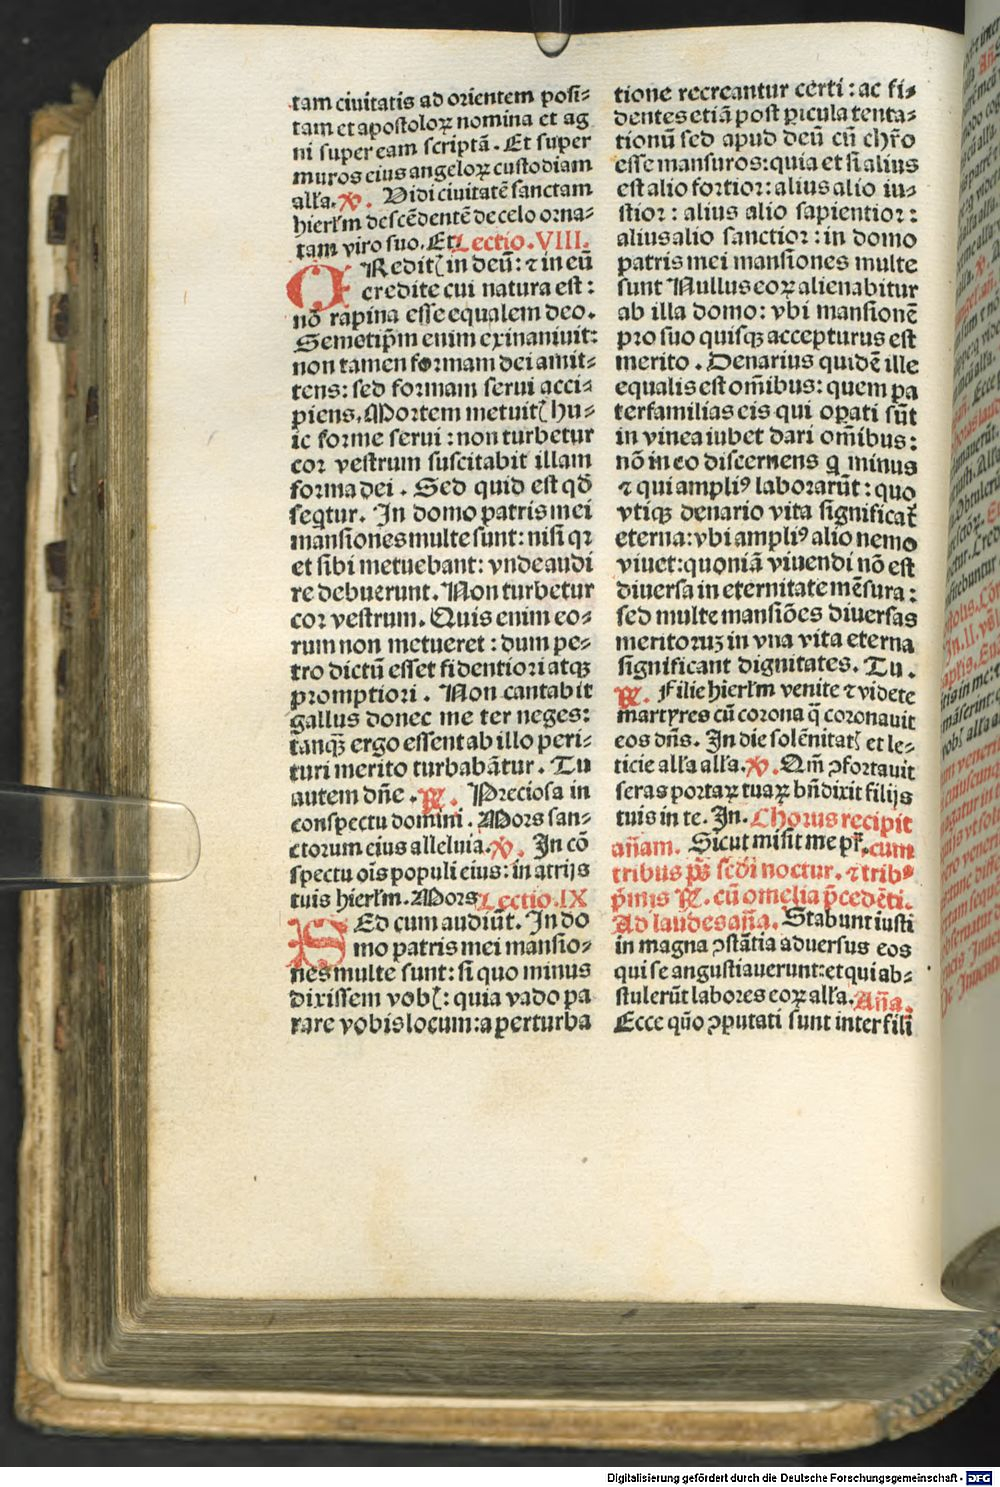 tam ciuitatis ad orientem posi⸗
tam et apostoloꝝ nomina et ag
ni super eam scriptā. Et super
muros eius angeloꝝ custodiam
alła. ℣. Vidi ciuitatē sanctam
hierłm descēdentē de celo orna⸗
tam viro suo. Et Lectio. VIII.
CRedit͛ in deū: ⁊ in eū
credite cui natura est:
nō rapina esse equalem deo.
Semetip̄m enim exinaniuit:
non tamen formam dei amit⸗
tens: sed formam serui acci⸗
piens. Mortem metuit͛ hu⸗
ic forme serui: non turbetur
cor vestrum suscitabit illam
forma dei. Sed quid est qđ
seqtur. In domo patris mei
mansiones multe sunt: nisi qꝛ
et sibi metuebant: vnde audi
re debuerunt. Non turbetur
cor vestrum. Quis enim eo⸗
rum non metueret: dum pe⸗
tro dictū esset fidentiori atqꝫ
promptiori. Non cantabit
gallus donec me ter neges:
tanqꝫ ergo essent ab illo peri⸗
turi merito turbabātur. Tu
autem dn̄e. ℟. Preciosa in
conspectu domini. Mors san⸗
ctorum eius alleluia. ℣. In cō
spectu oīs populi eius: in atrijs
tuis hierłm. Mors Lectio. IX
SEd cum audiūt. In do
mo patris mei mansio⸗
nes multe sunt: si quo minus
dixissem vob͛: quia vado pa
rare vobis locum: a perturba
tione recreantur certi: ac fi⸗
dentes etiā post ꝑicula tenta⸗
tionū sed apud deū cū chr̄o
esse mansuros: quia et si alius
est alio fortior: alius alio iu⸗
stior: alius alio sapientior:
alius alio sanctior: in domo
patris mei mansiones multe
sunt Nullus eoꝝ alienabitur
ab illa domo: vbi mansionē
pro suo quisqꝫ accepturus est
merito. Denarius quidē ille
equalis est om̄ibus: quem pa
terfamilias eis qui oꝑati sūt
in vinea iubet dari om̄ibus:
nō in eo discernens q̇ minus
⁊ qui ampliꝰ laborarūt: quo
vtiqꝫ denario vita significat͛
eterna: vbi ampliꝰ alio nemo
viuet: quoniā viuendi nō est
diuersa in eternitate mēsura:
sed multe mansiōes diuersas
meritoruꝫ in vna vita eterna
significant dignitates. Tu.
℟. Filie hierłm venite ⁊ videte
martyres cū corona q̄ coronauit
eos dn̄s. In die solēnitat͛ et le⸗
ticie alła alła. ℣. Qm̄ ꝯfortauit
seras portaꝝ tuaꝝ bn̄dixit filijs
tuis in te. In. Chorus recipit
an̄am. Sicut misit me pr̄. cum
tribus ps̄ scd̄i noctur. ⁊ tribꝰ
p̄mis ℟. cū omelia p̄cedēti.
Ad laudes an̄a. Stabunt iusti
in magna ꝯstātia aduersus eos
qui se angustiauerunt: et qui ab⸗
stulerūt labores eoꝝ alła. An̄a.
Ecce quō ꝯputati sunt inter fili
Digitalisierung gefördert durch die Deutsche Forschungsgemeinschaft - DFG